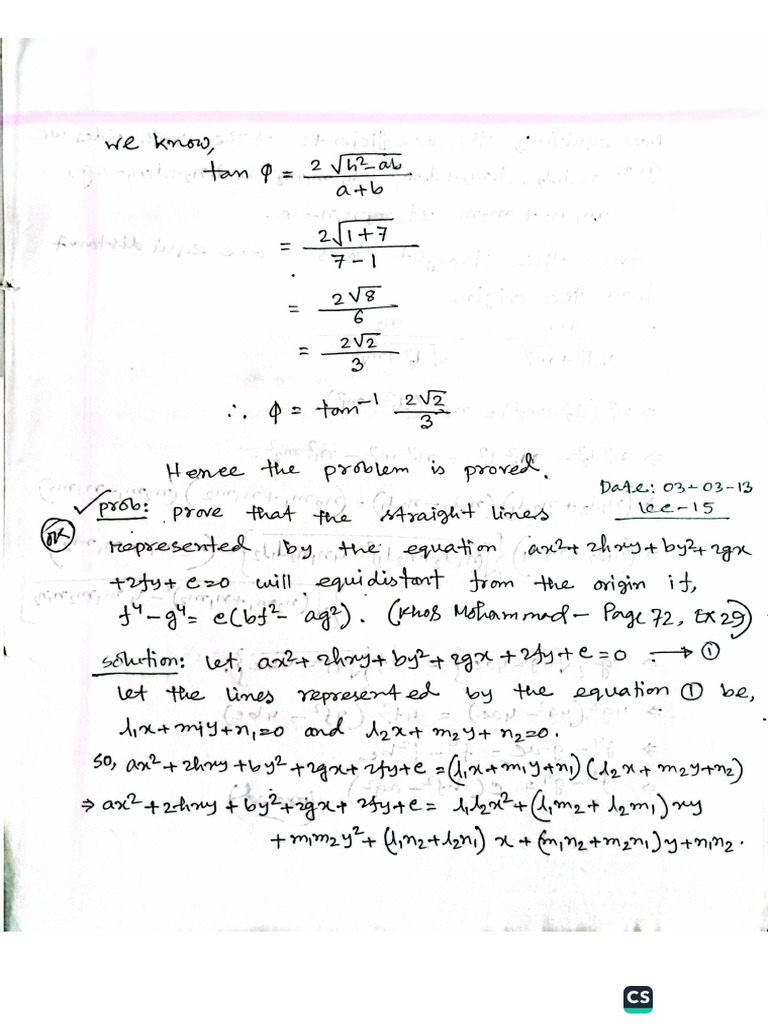 we know,
tan φ = 2√(h²-ab) / (a+b)
= 2√(1+7) / (7-1)
= 2√8 / 6
= 2√2 / 3
∴ φ = tan⁻¹ 2√2 / 3
Hence the problem is proved.
Date: 03-03-13
prob: prove that the straight lines lec-15
OK represented by the equation ax²+2hxy+by²+2gx
+2fy+c=0 will equidistant from the origin if,
f⁴-g⁴ = c(bf²-ag²). (Mohammad - Page 72, Ex 29)
solution: let, ax²+2hxy+by²+2gx+2fy+c=0 → ①
let the lines represented by the equation ① be,
l₁x+m₁y+n₁=0 and l₂x+m₂y+n₂=0.
so, ax²+2hxy+by²+2gx+2fy+c = (l₁x+m₁y+n₁)(l₂x+m₂y+n₂)
⇒ ax²+2hxy+by²+2gx+2fy+c = l₁l₂x²+(l₁m₂+l₂m₁)xy
+m₁m₂y²+(l₁n₂+l₂n₁)x+(m₁n₂+m₂n₁)y+n₁n₂.
CS